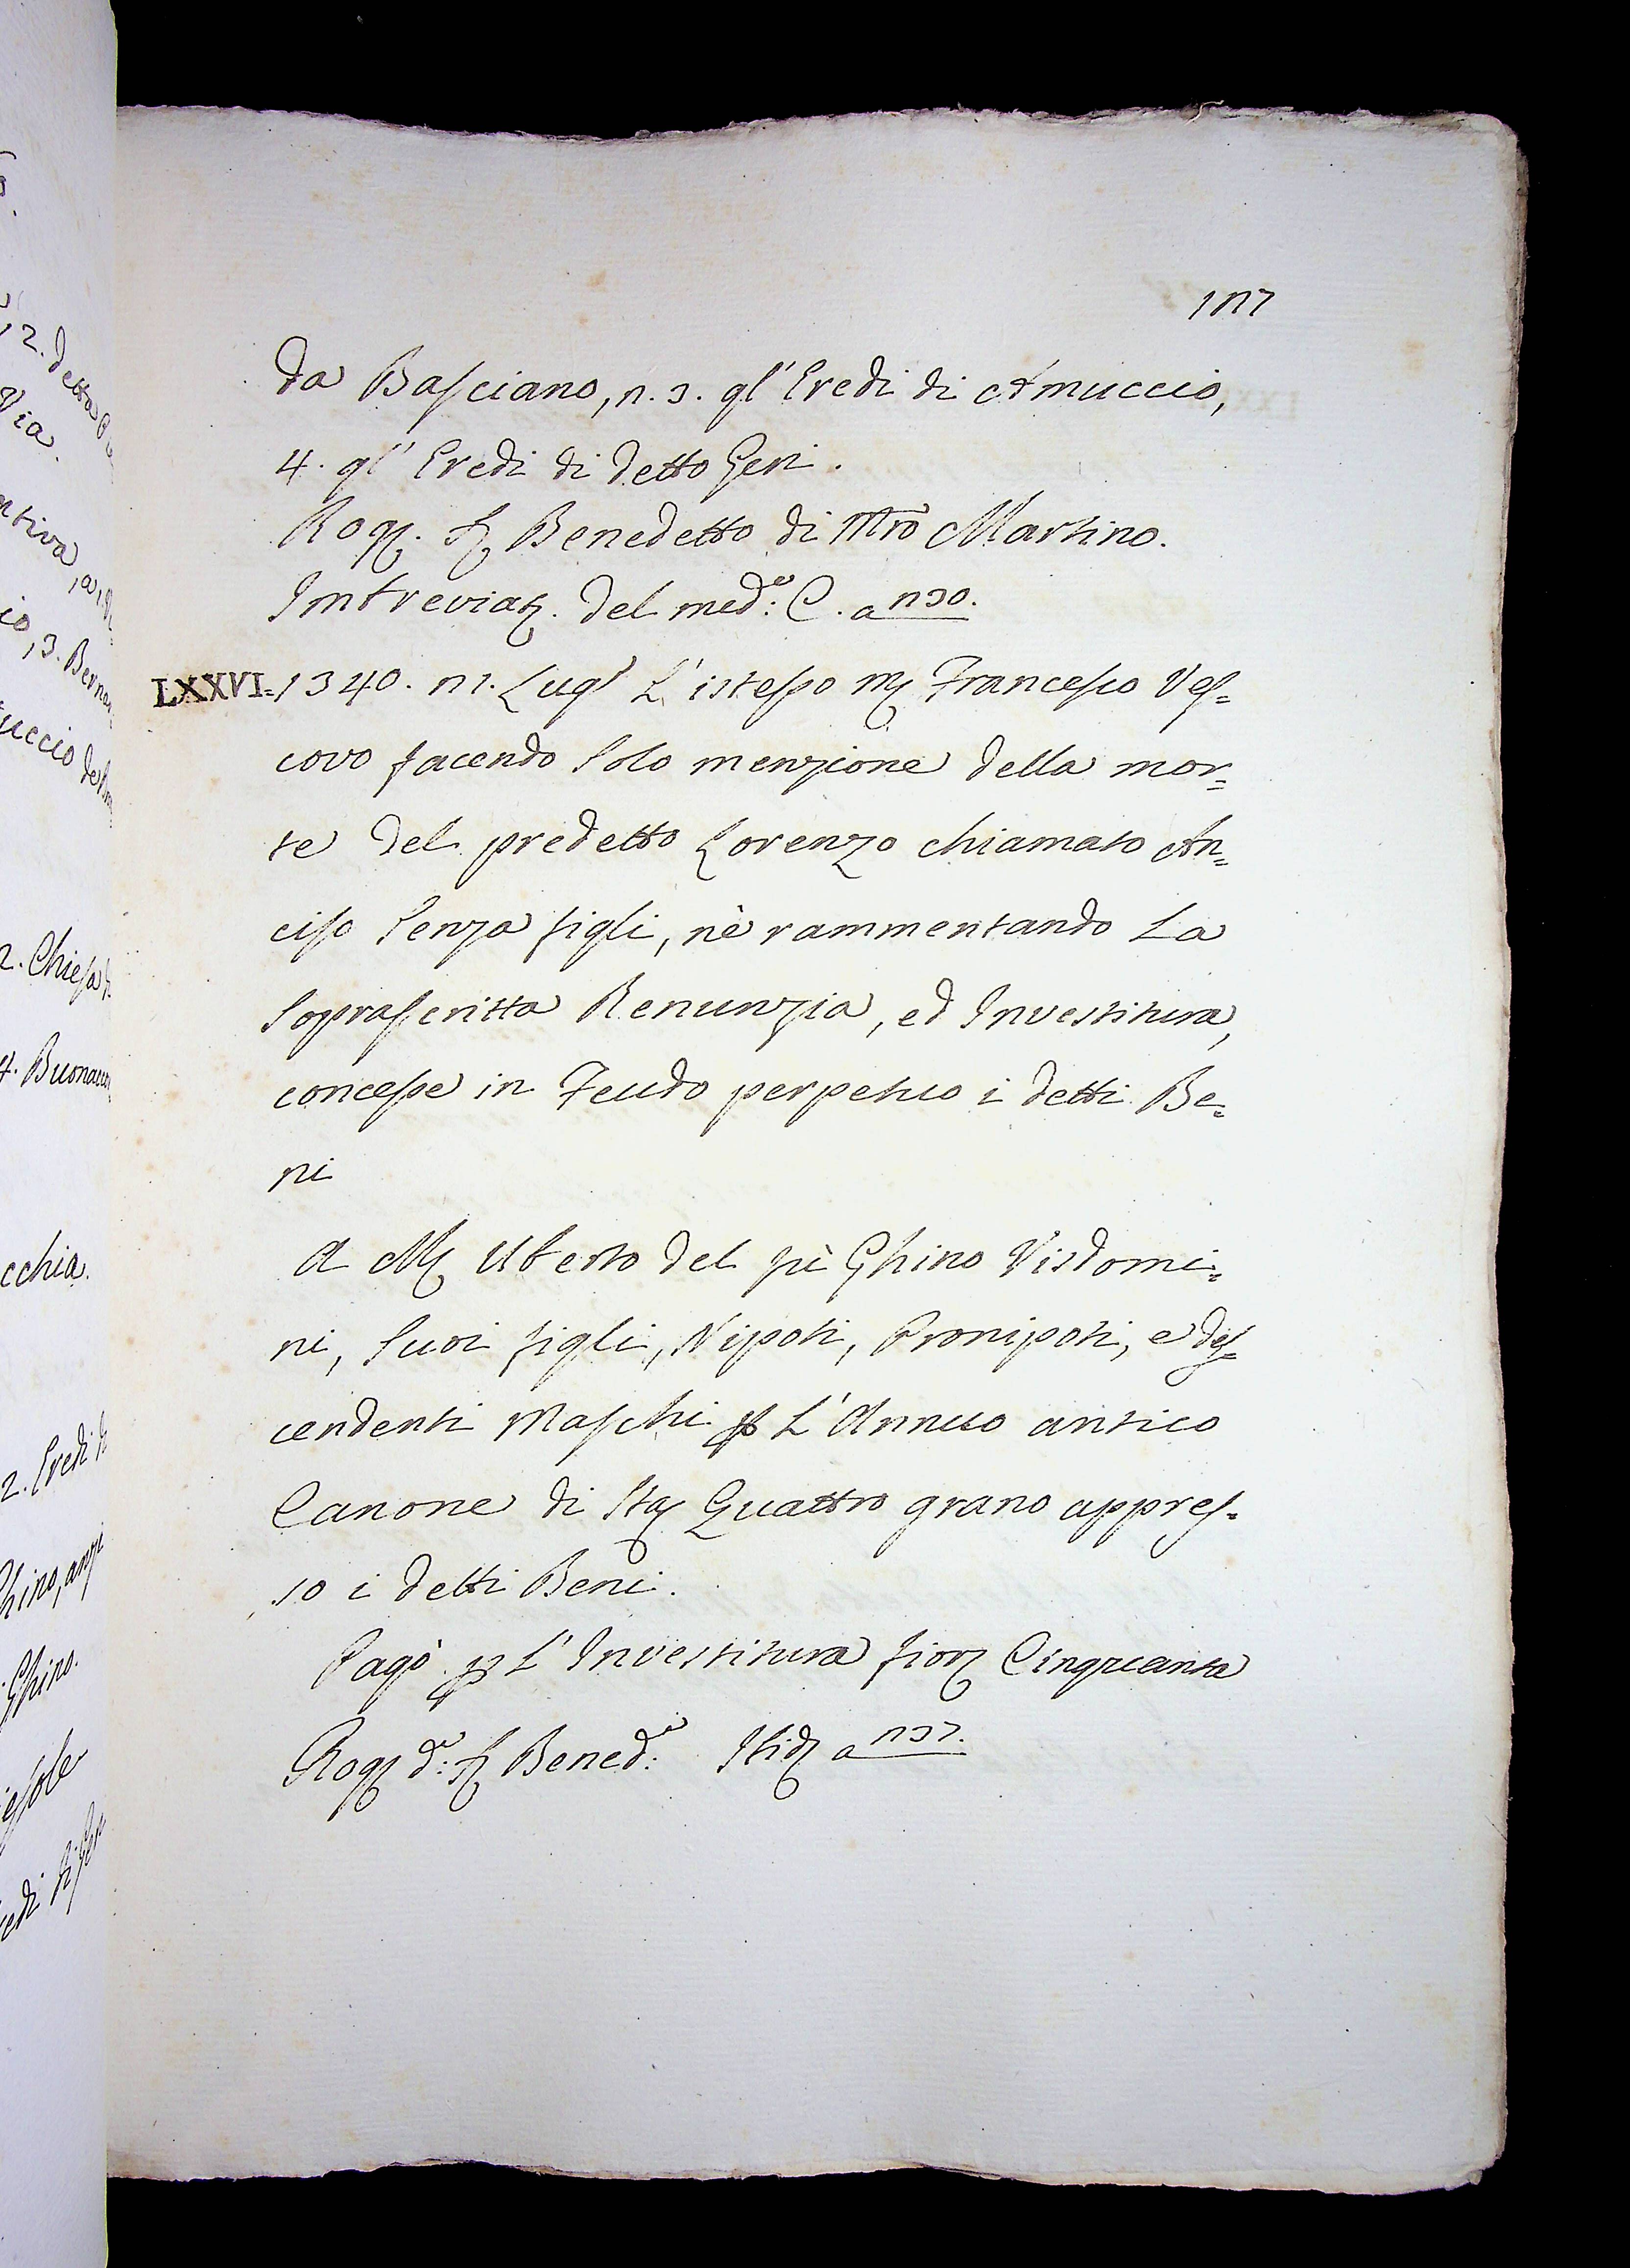 da Basciano, n. 3. gl' Eredi di Amuccio,
4. gl' Eredi di detto Geri.
Rog. S. Benedetto di Mro Martino.
Imbreviat. del med:o C. a
LXXVI = 1340. Lugl L' istesso M. Francesco Ves=
covo facendo solo menzione della mor=
te del predetto Lorenzo chiamato An=
ciso senza figli, nè rammentando la
soprascritta Renunzia, ed Investitura,
concesse in Feudo perpetuo i detti Be=
ni
A M. Uberto del fù Ghino Visdomi=
ni, suoi figli, Nipoti, Pronipoti, e des=
cendenti Maschi p L' Annuo antico
Canone di Sta Quattro grano appres=
so i detti Beni.
Pagò p L' Investitura fior Cinquanta
Rog d:o S. Bened:o Ibid a
12. detta
Via.
3. Bernar
2. Chiesa
4. Buonacco
cchia.
2. Eredi
Ghino.